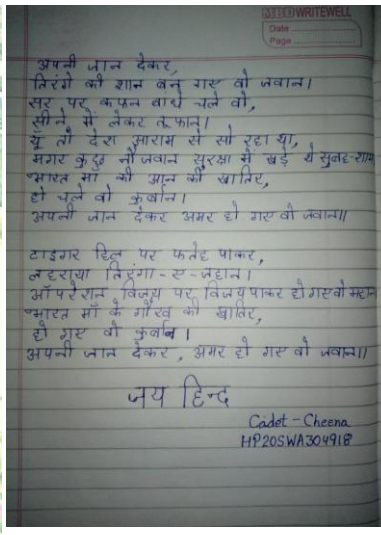 WRITEWELL
Date
Page
अपनी जान देकर,
तिरंगे की शान बन गए वो जवान।
सर पर कफन बांधे चले वो,
सीने में लेकर तूफान।
यूं तो देश आराम से सो रहा था,
मगर कुछ नौजवान सुरक्षा में खड़े थे सुबह-शाम
भारत माँ की आन की खातिर,
हो चले वो कुर्बान।
अपनी जान देकर अमर हो गए वो जवान॥
टाइगर हिल पर फतेह पाकर,
लहराया तिरंगा-ए-जहान।
ऑपरेशन विजय पर विजय पाकर हो गए वो महान
भारत माँ के गौरव की खातिर,
हो गए वो कुर्बान।
अपनी जान देकर, अमर हो गए वो जवान॥
जय हिन्द
Cadet - Cheena
HP20SWA304918